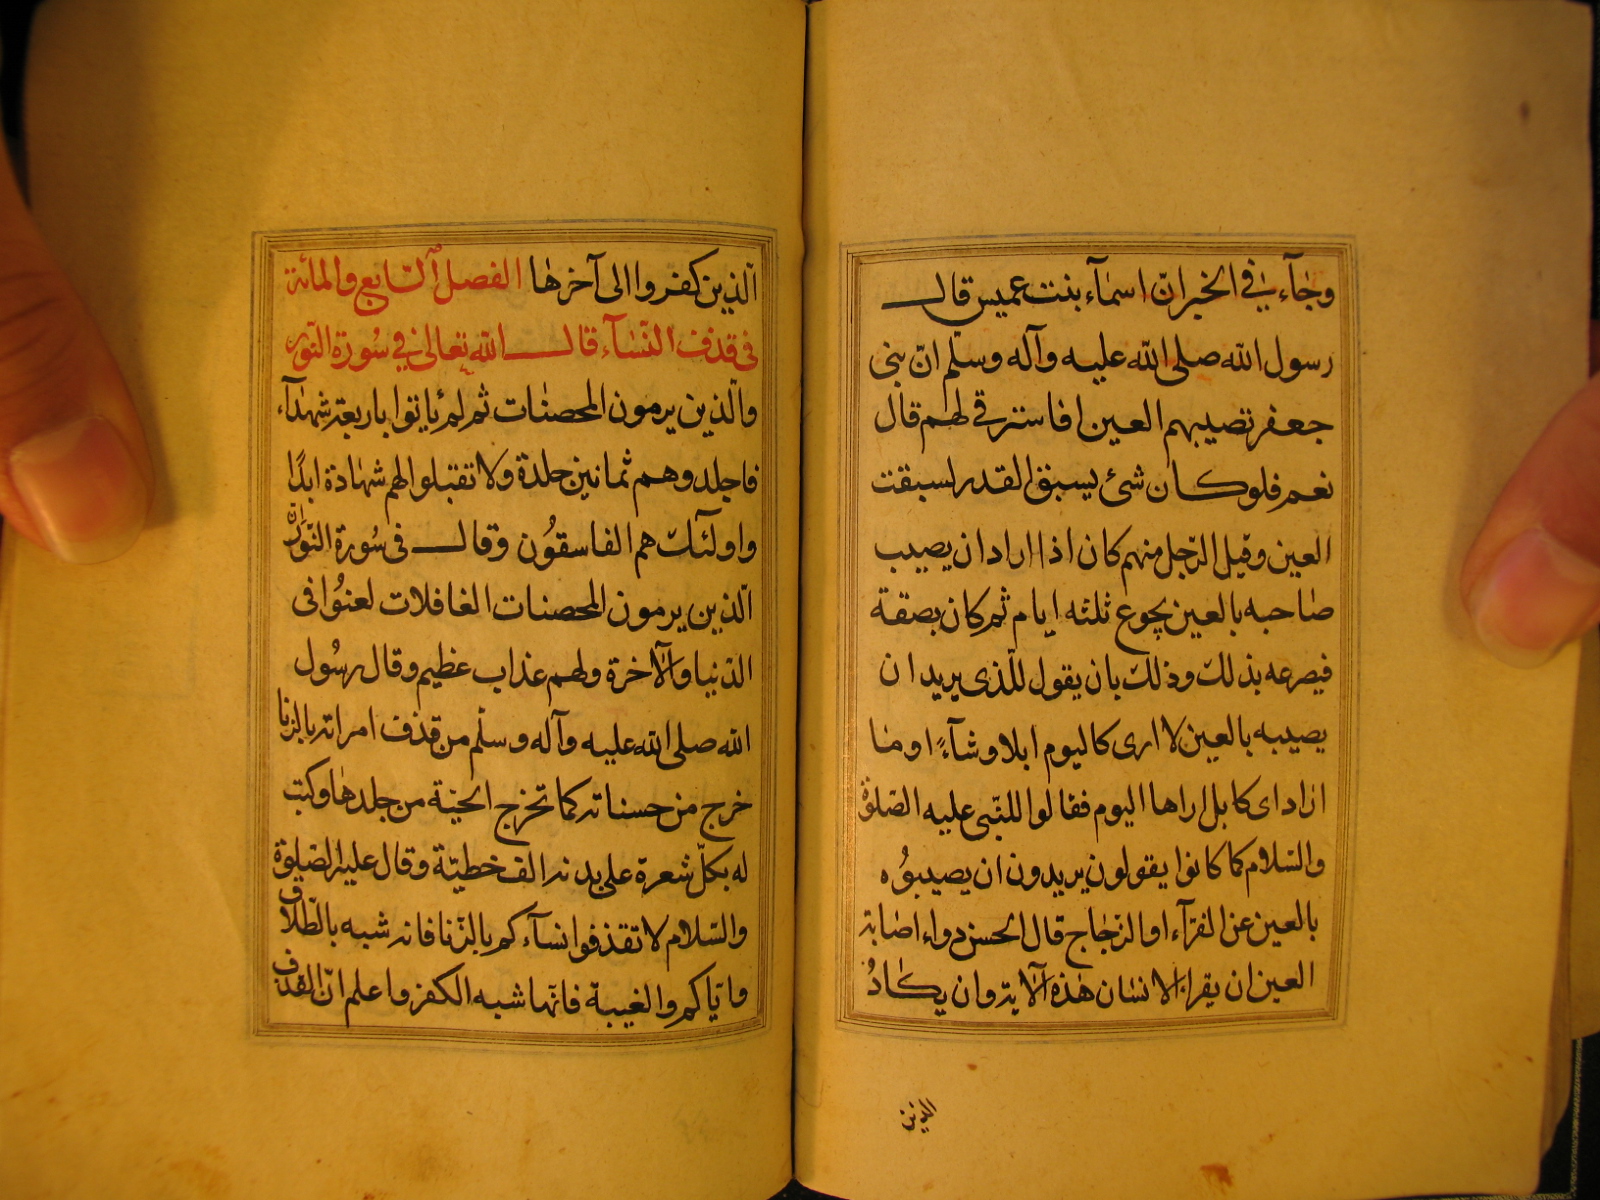 وجاء في الخبر ان اسماء بنت عميس قالــــ
رسول الله صلى الله عليه وآله وسلم ان بنى
جعفر تصيبهم العين افاسترقى لهم قال
نعم فلو كان شئ يسبق القدر لسبقت
العين وقيل الرجل منهم كان اذا اراد ان يصيب
صاحبه بالعين يجوع ثلثه ايام ثم كان بصقة
فيصرعه بذلك وذلك بان يقول للذى يريد ان
يصيبه بالعين لا ارى كاليوم ابلا وشاءً او ما
اراد اى كابل اراها اليوم فقالوا للنبى عليه الصلوة
والسلام كما كانوا يقولون يريدون ان يصيبوُه
بالعين عن الفراء او الزجاج قال الحسن دواء اصابة
العين ان يقرا الانسان هذه الآية وان يكادُ
الذين
الّذين كفروا الى آخرها الفصل السابع والمائة
فى قذف النساء قالــــ الله تعالى فى سورة النور
والّذين يرمون المحصنات ثم لم ياتوا باربعة شهداء
فاجلدوهم ثمانين جلدة ولا تقبلوا لهم شهادة ابدًا
واولئك هم الفاسقوُن وقالــــ فى سُورة النّور انّ
الّذين يرمون المحصنات الغافلات لعنوُا فى
الدنيا والآخرة ولهم عذاب عظيم وقال رسُول
الله صلى الله عليه وآله وسلّم من قذف امراته بالزنا
خرج من حسناته كما تخرج الحيّة من جلدها وكتب
له بكلّ شعرة على بدنه الف خطيّة وقال عليه الصّلوة
والسّلام لا تقذفوا نساءكم بالزّنا فانه شبه بالطّلاق
وايّاكم والغيبة فانّها شبه الكفر واعلم انّ القذف